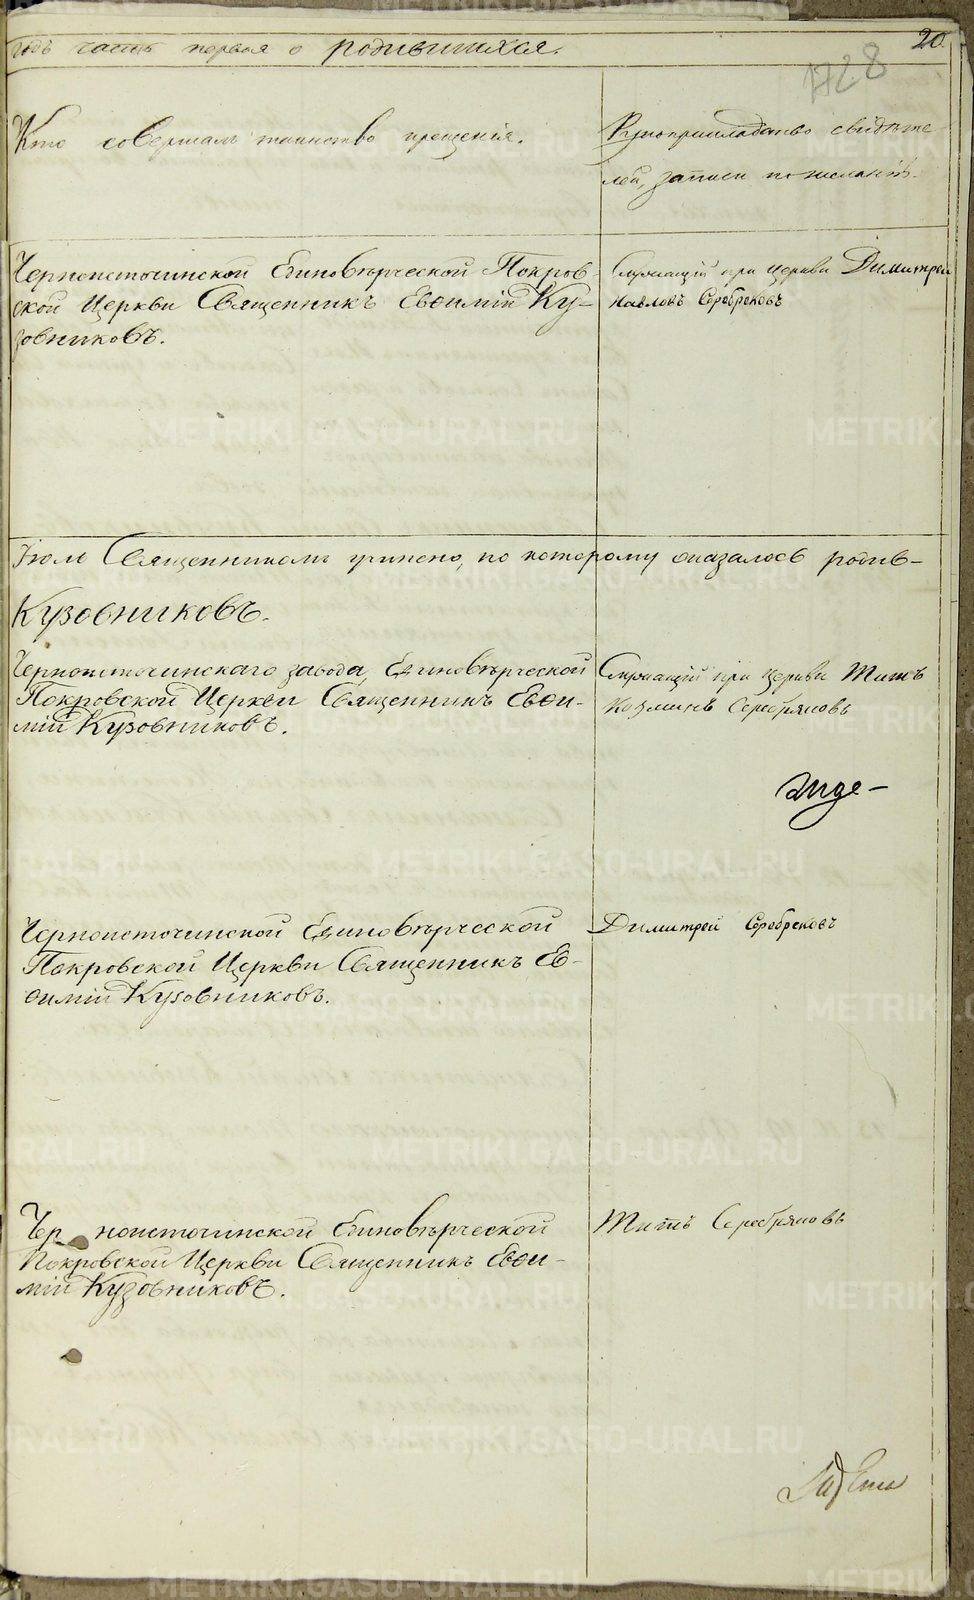 годъ часть первая о родившихся.
20.
1728
Кто совершалъ таинство крещенія.
Рукоприкладство свидѣте
лей, записи по желанію.
Черноисточинской Единовѣрческой Покров-
ской Церкви Священникъ Евѳимій Ку-
зовниковъ.
Служащій при церкви Димитрей
Павловъ Серебрековъ
Священникомъ учинено, по которому оказалось родив-
Кузовниковъ.
Черноисточинскаго завода, Единовѣрческой
Покровской Церкви Священникъ Евѳи-
мій Кузовниковъ.
Служащій при церкви Титъ
Козминъ Серебряковъ
Черноисточинской Единовѣрческой
Покровской Церкви Священникъ Ев-
ѳимій Кузовниковъ.
Димитрей Серебрековъ
Черноисточинской Единовѣрческой
Покровской Церкви Священникъ Евѳи-
мій Кузовниковъ.
Титъ Серебряковъ
METRIKI.GASO-URAL.RU